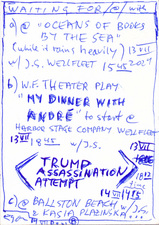 WAITING FOR /@/ with
a) @ "OCEANS OF BOOKS
BY THE SEA"
(while it rains heavily) 13 VII
w/ J.S. WELLFLEET 15 45 2024
b) W.F. THEATER PLAY
"MY DINNER WITH
ANDRÉ" to start @
HARBOR STAGE COMPANY WELLFLEET
13 VII 18 45 w/ J.S.
13 VII
TRUMP
ASSASSINATION
ATTEMPT
1812
14 VII
c) @ BALLSTON BEACH
& KASIA PLAZINSKA